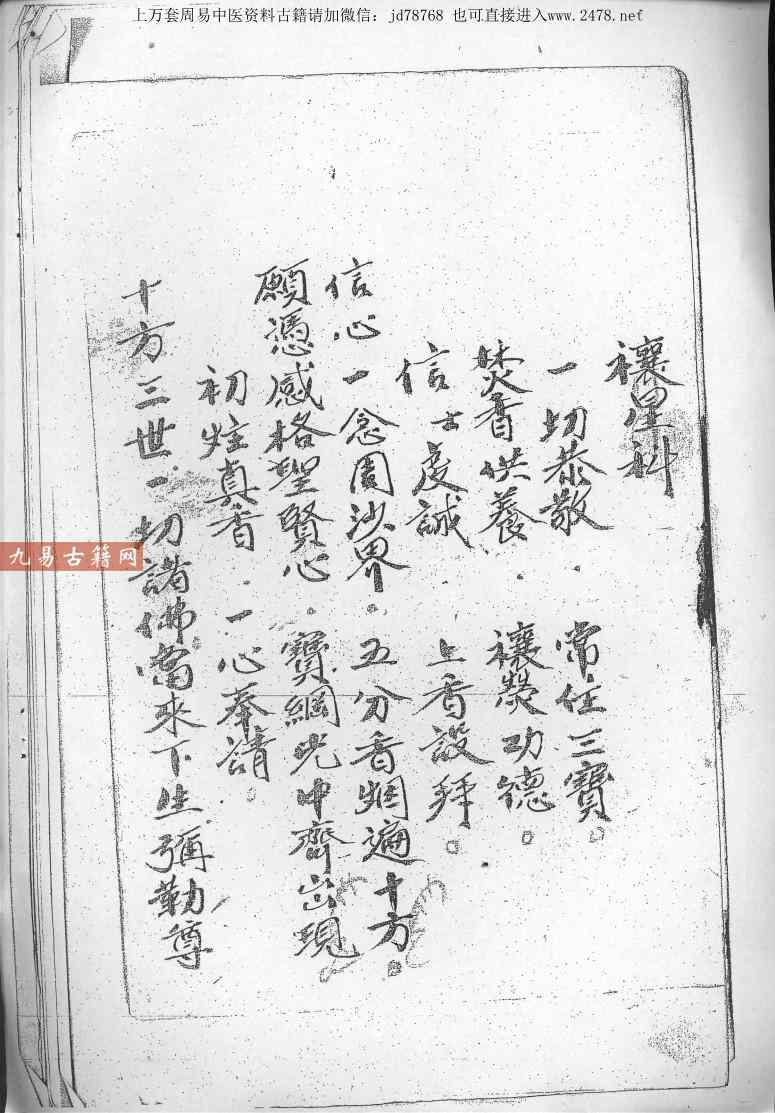 上万套周易中医资料古籍请加微信：jd78768 也可直接进入www.2478.net
禳星科
一切恭敬 常住三寶。
焚香供養 禳熒功德。
信士虔誠 上香設拜。
信心一念周沙界。五分香烟遍十方。
願憑感格聖賢心。寶網光中齊出現
初炷真香 一心奉請。
十方三世一切諸佛當來下生彌勒尊
九易古籍网